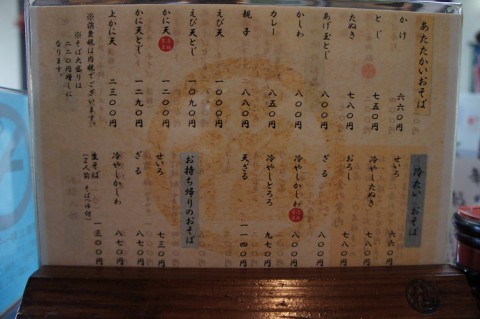 あたたかいおそば
かけ 六六〇円
とじ 七五〇円
たぬき 七八〇円
あげ玉とじ 八〇〇円
かしわ 八〇〇円
カレー 八五〇円
親子 八八〇円
えび天 一〇〇〇円
えび天とじ 一〇九〇円
かに天 一二〇〇円
かに天とじ 一二九〇円
上かに天 二三〇〇円
※消費税は内税でございます。
※そば大盛りは
二二〇円増しに
なります。
冷たいおそば
せいろ 六六〇円
冷やしたぬき 七八〇円
おろし 七八〇円
ざる 八〇〇円
冷やしかしわ 八〇〇円
冷やしとろろ 九七〇円
天ざる 一一四〇円
お持ち帰りのおそば
せいろ 七三〇円
ざる 八七〇円
冷やしかしわ 八七〇円
生そば 一三〇〇円
(二人前 そばつゆ付)